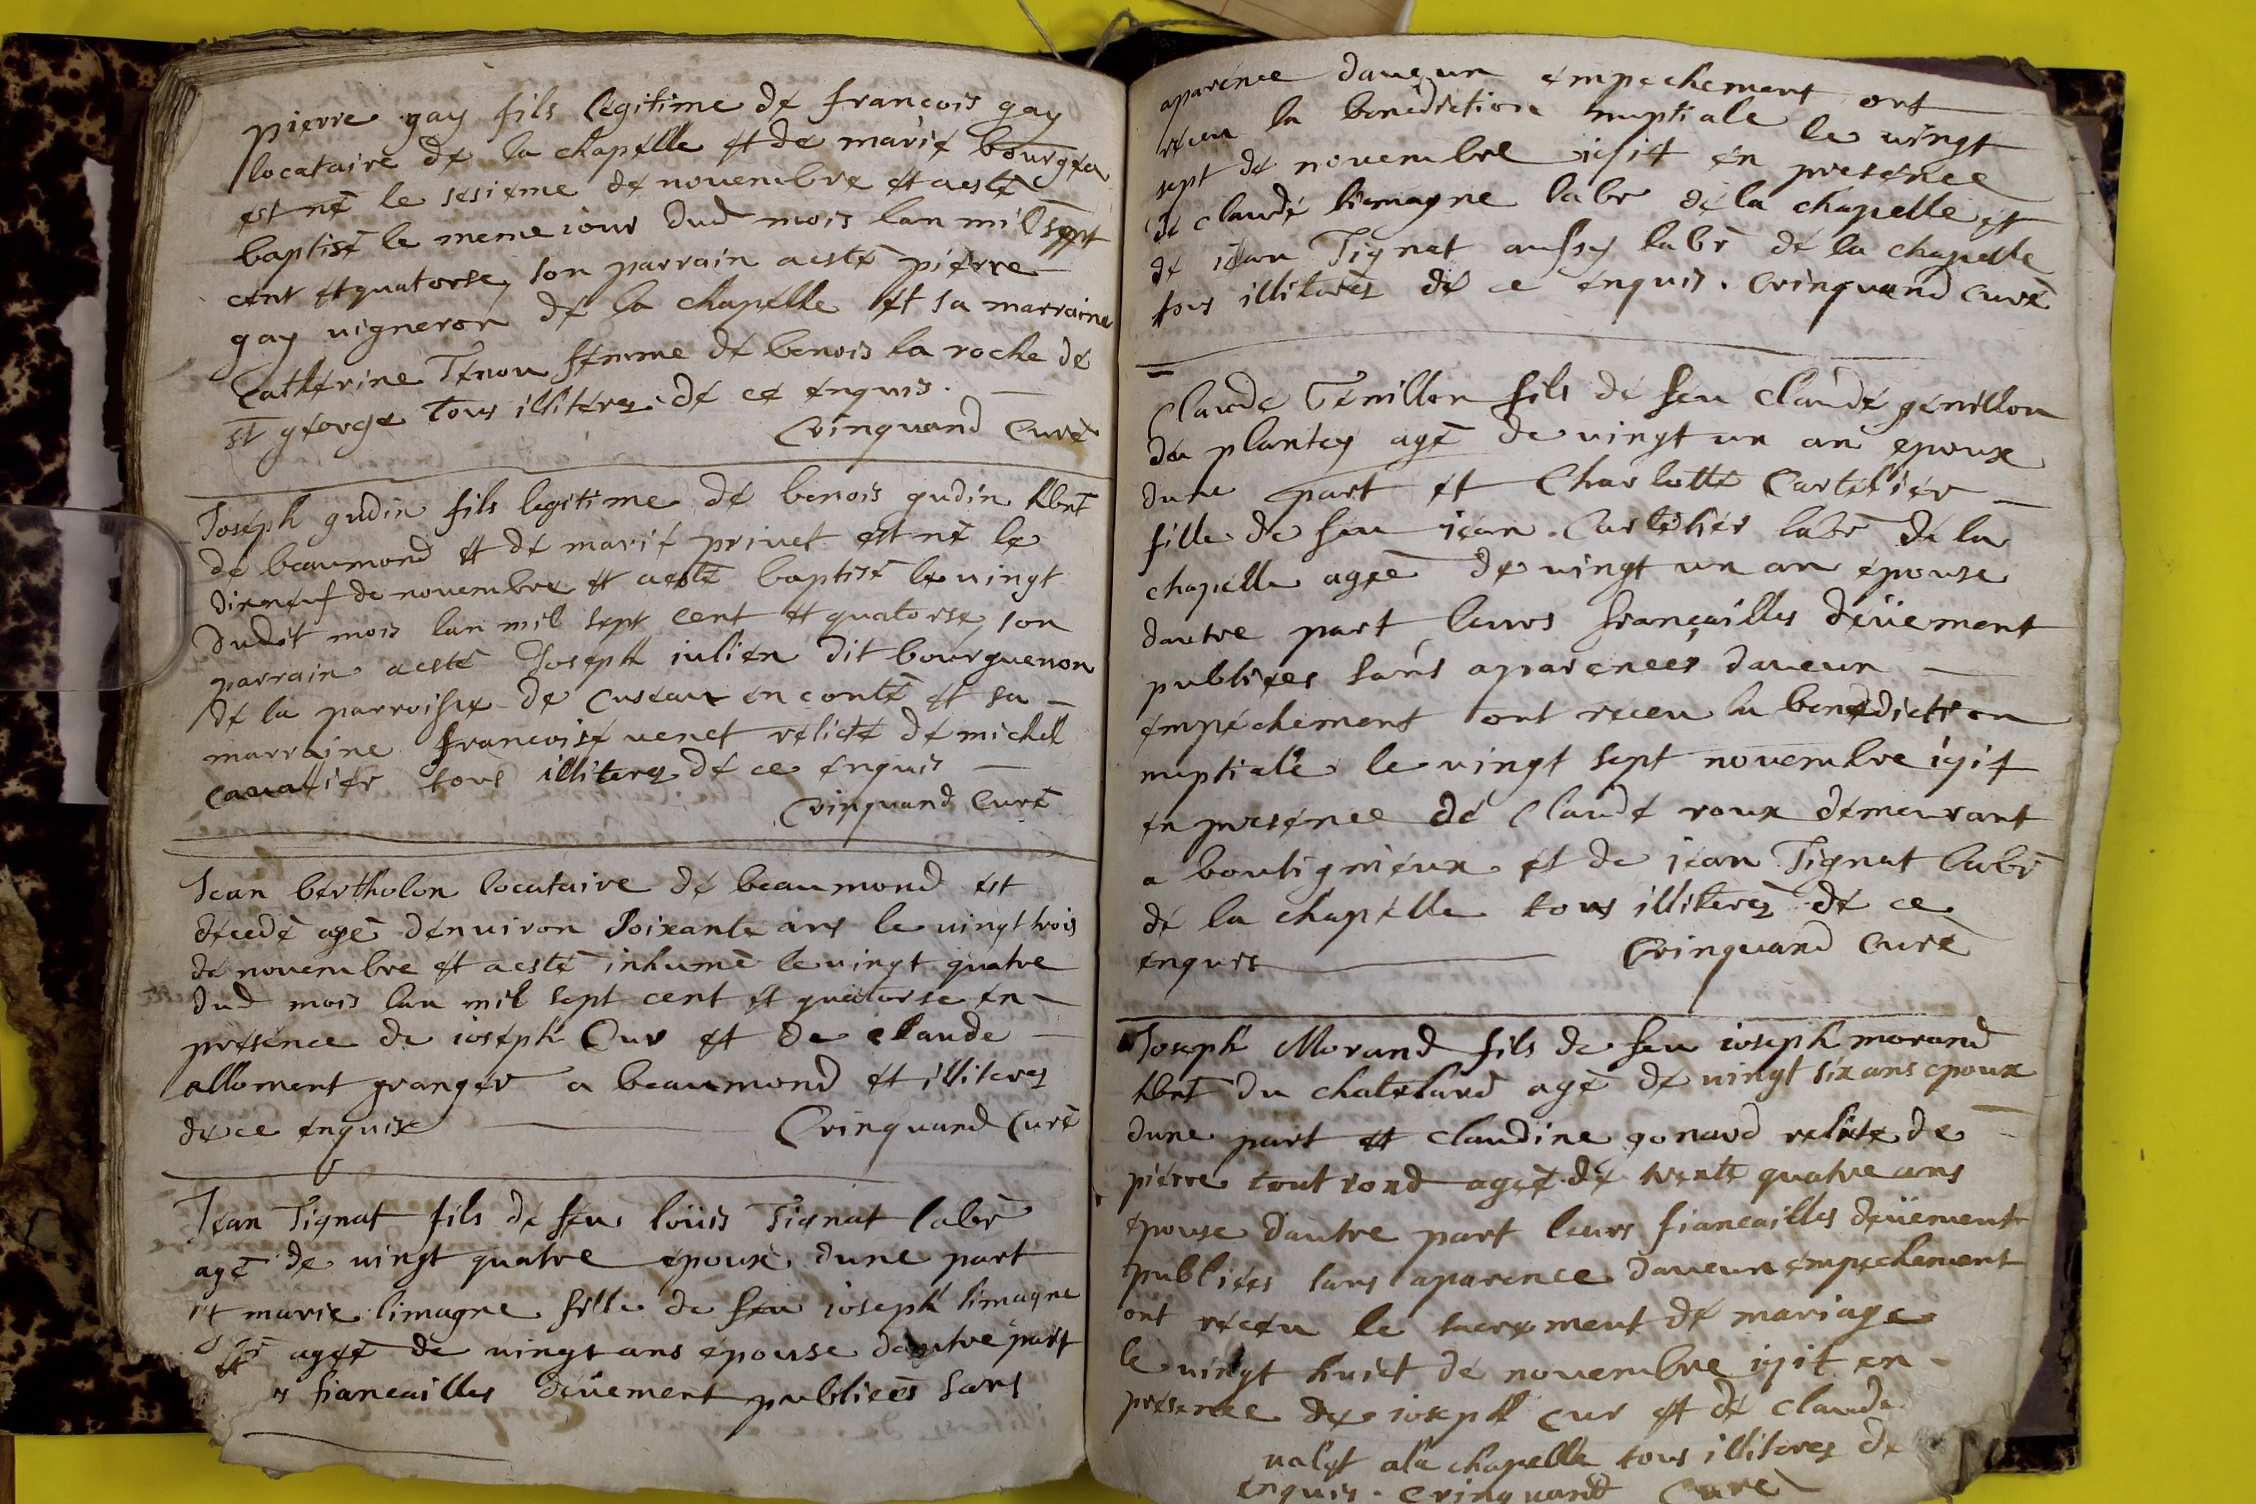 pierre gay fils legitime de françois gay
locataire de la chapelle et de marie bourgea
est né le sesieme de novembre et a esté
baptisé le meme iour dud mois lan mil sept
cent et quatorse, son parrain a esté pierre
gay vigneron de la chapelle et sa marraine
Catherine Tenou femme de benois la roche de
st george tous illiterez de ce enquis.
Crinquand Curé
Joseph gudin fils legitime de benois gudin hbnt
de beaumond et de marie privet est né le
dixneuf de novembre et a esté baptisé le vingt
dudit mois lan mil sept cent et quatorse, son
parrain a esté Joseph iulien dit bourguenon
de la parroisse de cuseau en conté et sa
marraine francoise venet relicte de michel
cavatier tous illiterez de ce enquis
Crinquand Curé
Jean bertholon locataire de beaumond est
decedé agé denviron soixante ans le vingt trois
de novembre et a esté inhumé le vingt quatre
dud mois lan mil sept cent et quatorse en
presence de ioseph Cur et de claude
alloment granger a beaumond et illiterez
de ce enquis
Crinquand Curé
Jean Tignat fils de feu loüis Tignat labr
agé de vingt quatre epoux dune part
et marie limagne fille de feu ioseph limagne
agee de vingt ans epouse dautre part
fiancailles deüement publiees sans
aparence daucun empechement ont
receu la benediction nuptiale le vingt
sept de novembre 1714 en presence
de claude limagne labr de la chapelle et
de iean Tignat aussy labr de la chapelle
tous illiterez de ce enquis. Crinquand curé
Claude Genillon fils de feu claude genillon
du plantey agé de vingt un an epoux
dune part et Charlotte Cartelier
fille de feu iean Cartelier labr de la
chapelle agee de vingt un an epouse
dautre part leurs françailles deüement
publiees sans aparences daucun
empechement ont receu la benediction
nuptiale le vingt sept novembre 1714
en presence de Claude roux demeurant
a boutignieux et de iean Tignat labr
de la chapelle tous illiterez de ce
enquis Crinquand Curé
Joseph Morand fils de feu ioseph morand
hbnt du chatelard agé de vingt six ans epoux
dune part et claudine gonard relicte de
pierre tout rond agee de trente quatre ans
epouse dautre part leurs fiancailles deüement
publiees sans aparence daucun empechement
ont receu le sacrement de mariage
le vingt huict de novembre 1714 en
presence de ioseph cur et de claude
valet a la chapelle tous illiterez de
enquis. Crinquand Curé